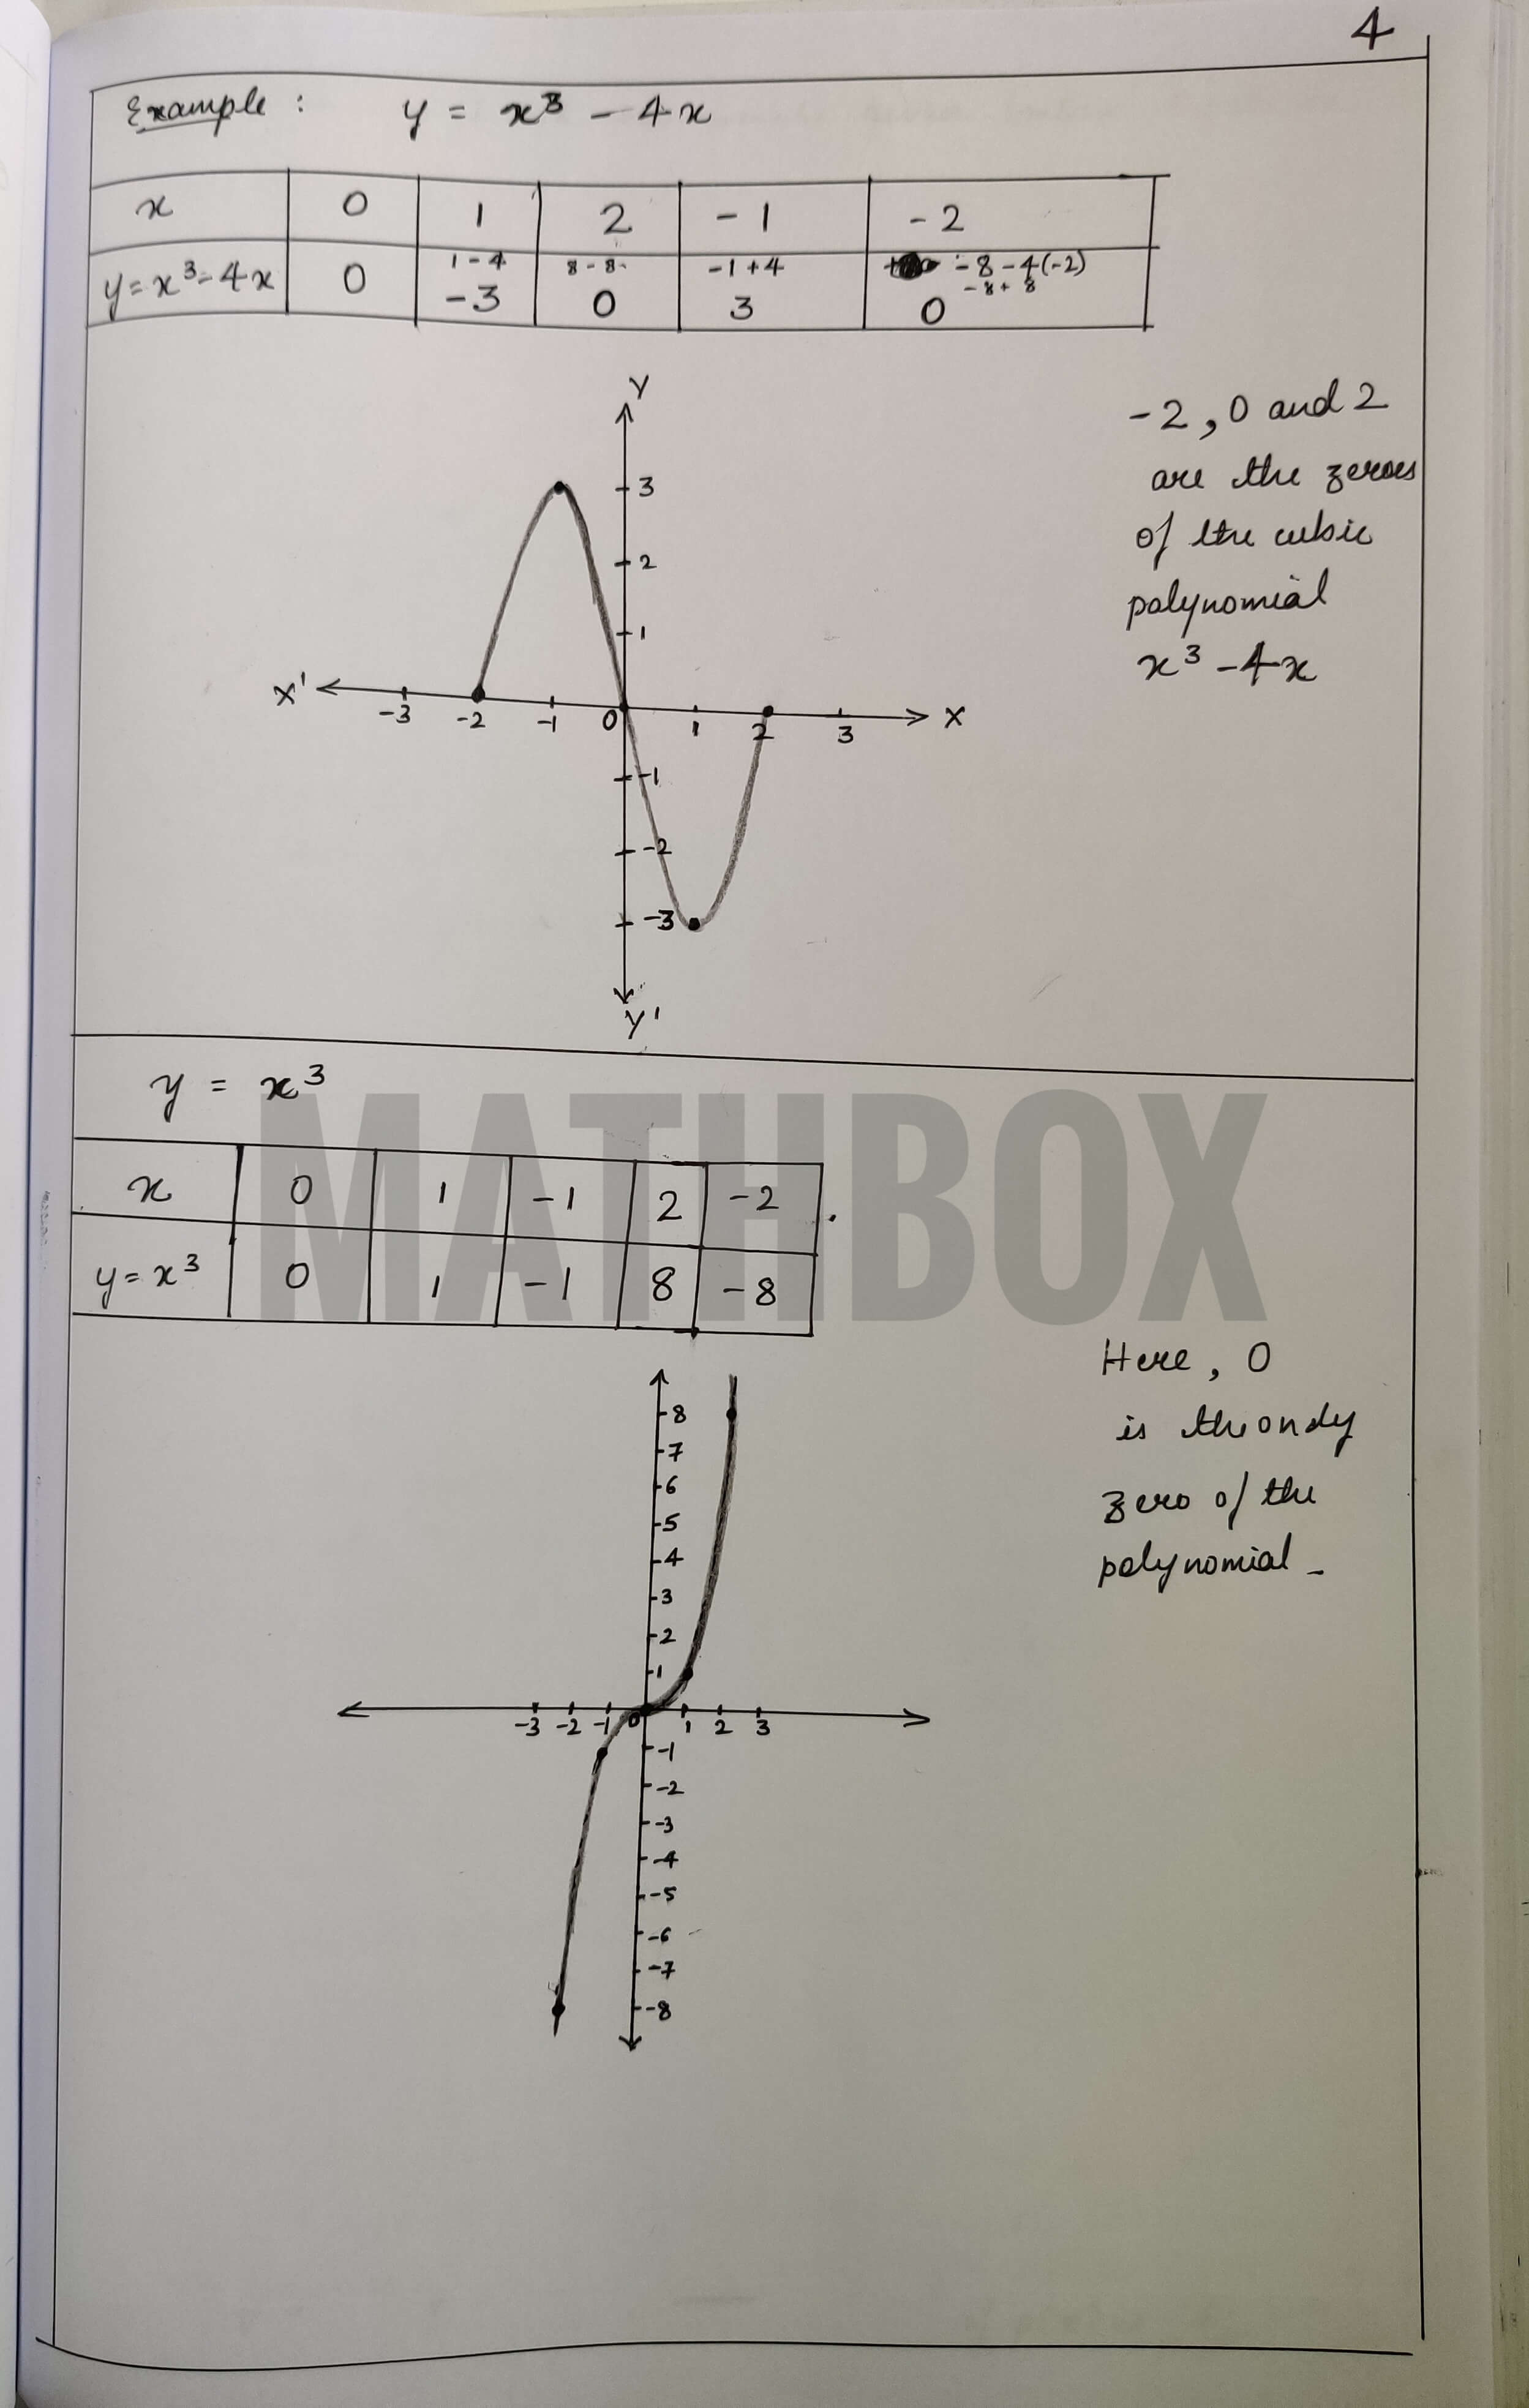 4
Example : y = x³ - 4x
x 0 1 2 -1 -2
y = x³ - 4x 0 1-4 -3 8-8 0 -1+4 3 -8-4(-2) -8+8 0
Y
3
2
1
X' -3 -2 -1 0 1 2 3 X
-1
-2
-3
Y'
-2, 0 and 2
are the zeroes
of the cubic
polynomial
x³ - 4x
y = x³
MATHBOX
x 0 1 -1 2 -2
y = x³ 0 1 -1 8 -8
8
7
6
5
4
3
2
1
-3 -2 -1 0 1 2 3
-1
-2
-3
-4
-5
-6
-7
-8
Here, 0
is the only
zero of the
polynomial